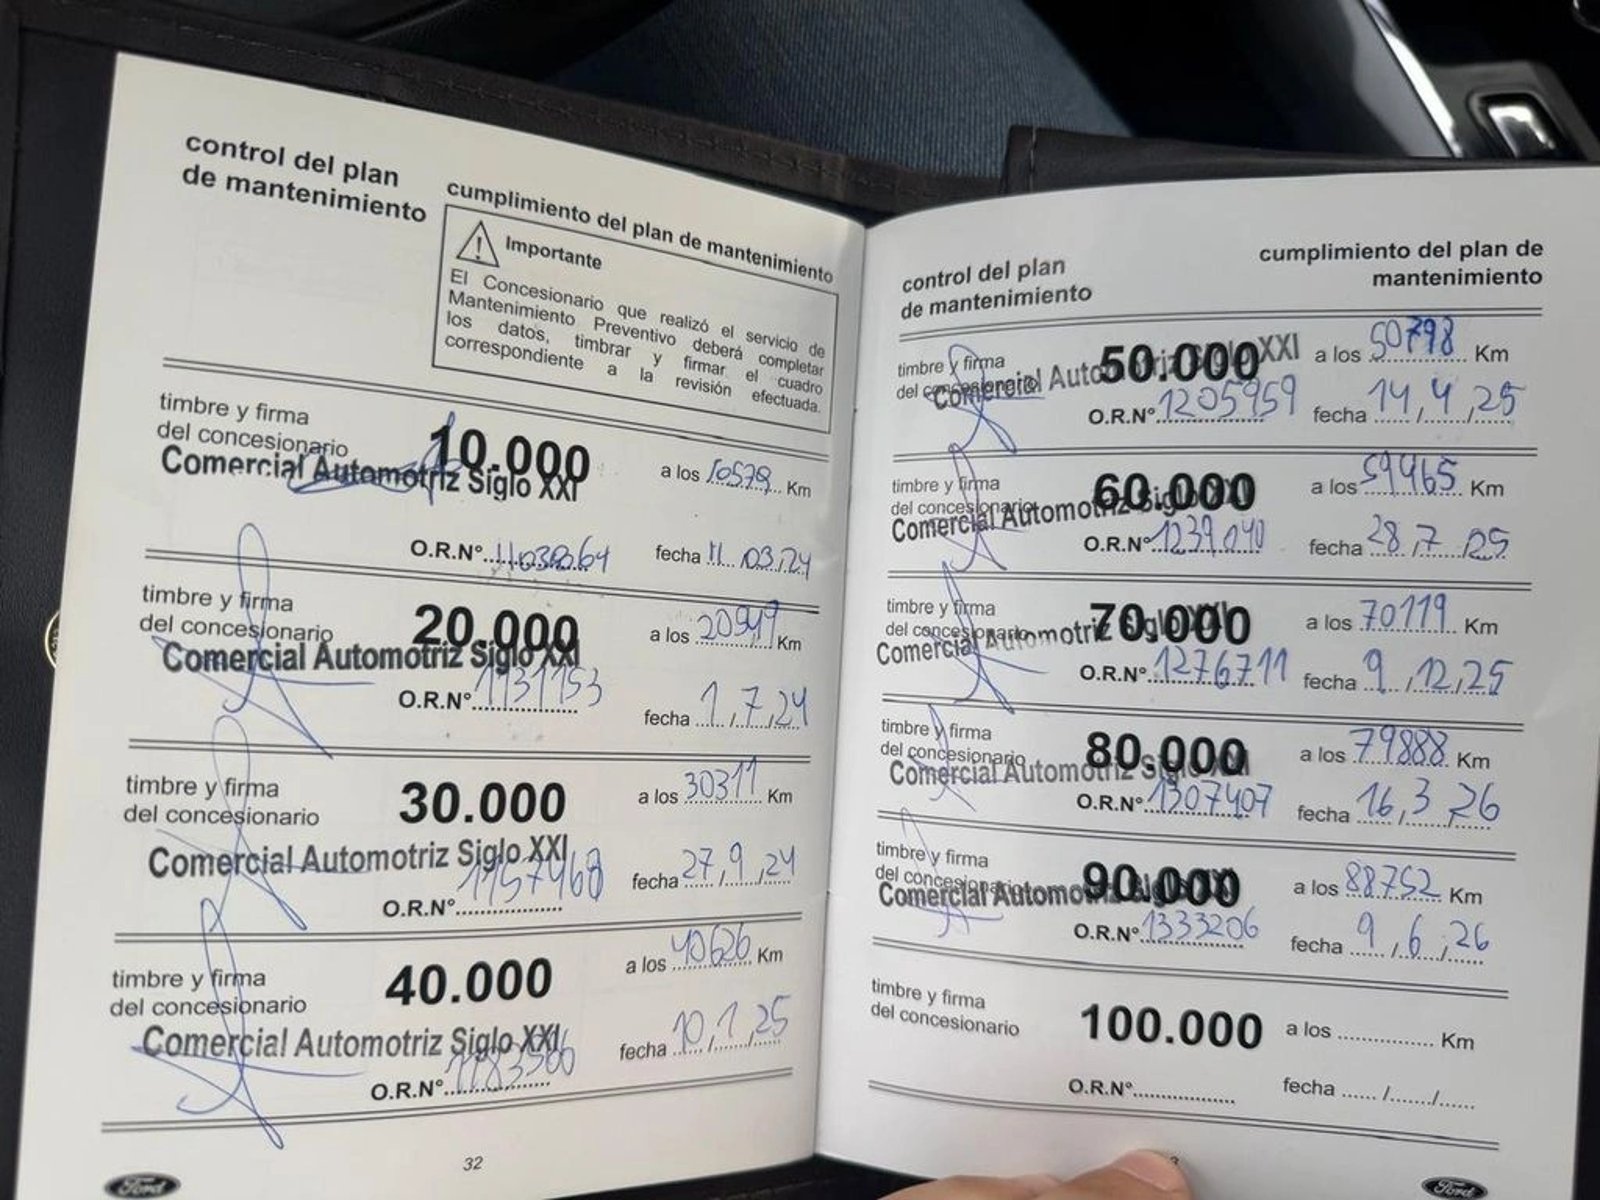 control del plan
de mantenimiento
cumplimiento del plan de mantenimiento
Importante
El Concesionario que realizó el servicio de
Mantenimiento Preventivo deberá completar
los datos, timbrar y firmar el cuadro
correspondiente a la revisión efectuada.
timbre y firma
del concesionario
10.000
a los 10579 Km
Comercial Automotriz Siglo XXI
O.R.N°
fecha 11 03/24
timbre y firma
del concesionario
20.000
a los 20949 Km
Comercial Automotriz Siglo XXI
O.R.N° 1131153
fecha 1/7/24
timbre y firma
del concesionario
30.000
a los 30311 Km
Comercial Automotriz Siglo XXI
O.R.N° 1157468
fecha 27/9/24
timbre y firma
del concesionario
40.000
a los 40626 Km
Comercial Automotriz Siglo XXI
O.R.N° 1183566
fecha 10/1/25
32
Ford
control del plan
de mantenimiento
cumplimiento del plan de
mantenimiento
timbre y firma
del concesionario
50.000
a los 50798 Km
Comercial Automotriz Siglo XXI
O.R.N° 1205959
fecha 14/4/25
timbre y firma
del concesionario
60.000
a los 59965 Km
Comercial Automotriz Siglo XXI
O.R.N° 1239040
fecha 28/7/25
timbre y firma
del concesionario
70.000
a los 70119 Km
Comercial Automotriz Siglo XXI
O.R.N° 1276711
fecha 9/12/25
timbre y firma
del concesionario
80.000
a los 79888 Km
Comercial Automotriz Siglo XXI
O.R.N° 1307407
fecha 16/3/26
timbre y firma
del concesionario
90.000
a los 88752 Km
Comercial Automotriz Siglo XXI
O.R.N° 1333206
fecha 9/6/26
timbre y firma
del concesionario
100.000
a los ............... Km
O.R.N°................
fecha ....../......./......
Ford